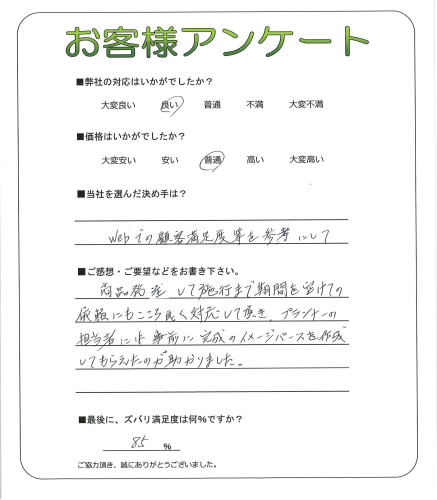 お客様アンケート
■弊社の対応はいかがでしたか？
大変良い　良い　普通　不満　大変不満
■価格はいかがでしたか？
大変安い　安い　普通　高い　大変高い
■当社を選んだ決め手は？
webでの顧客満足度等を参考にして
■ご感想・ご要望などをお書き下さい。
商品発注して施行まで期間を空けての
依頼にもこころ良く対応して頂き、プランナーの
担当者には事前に完成のイメージパースを作成
してもらえたのが助かりました。
■最後に、ズバリ満足度は何％ですか？
85 %
ご協力頂き、誠にありがとうございました。